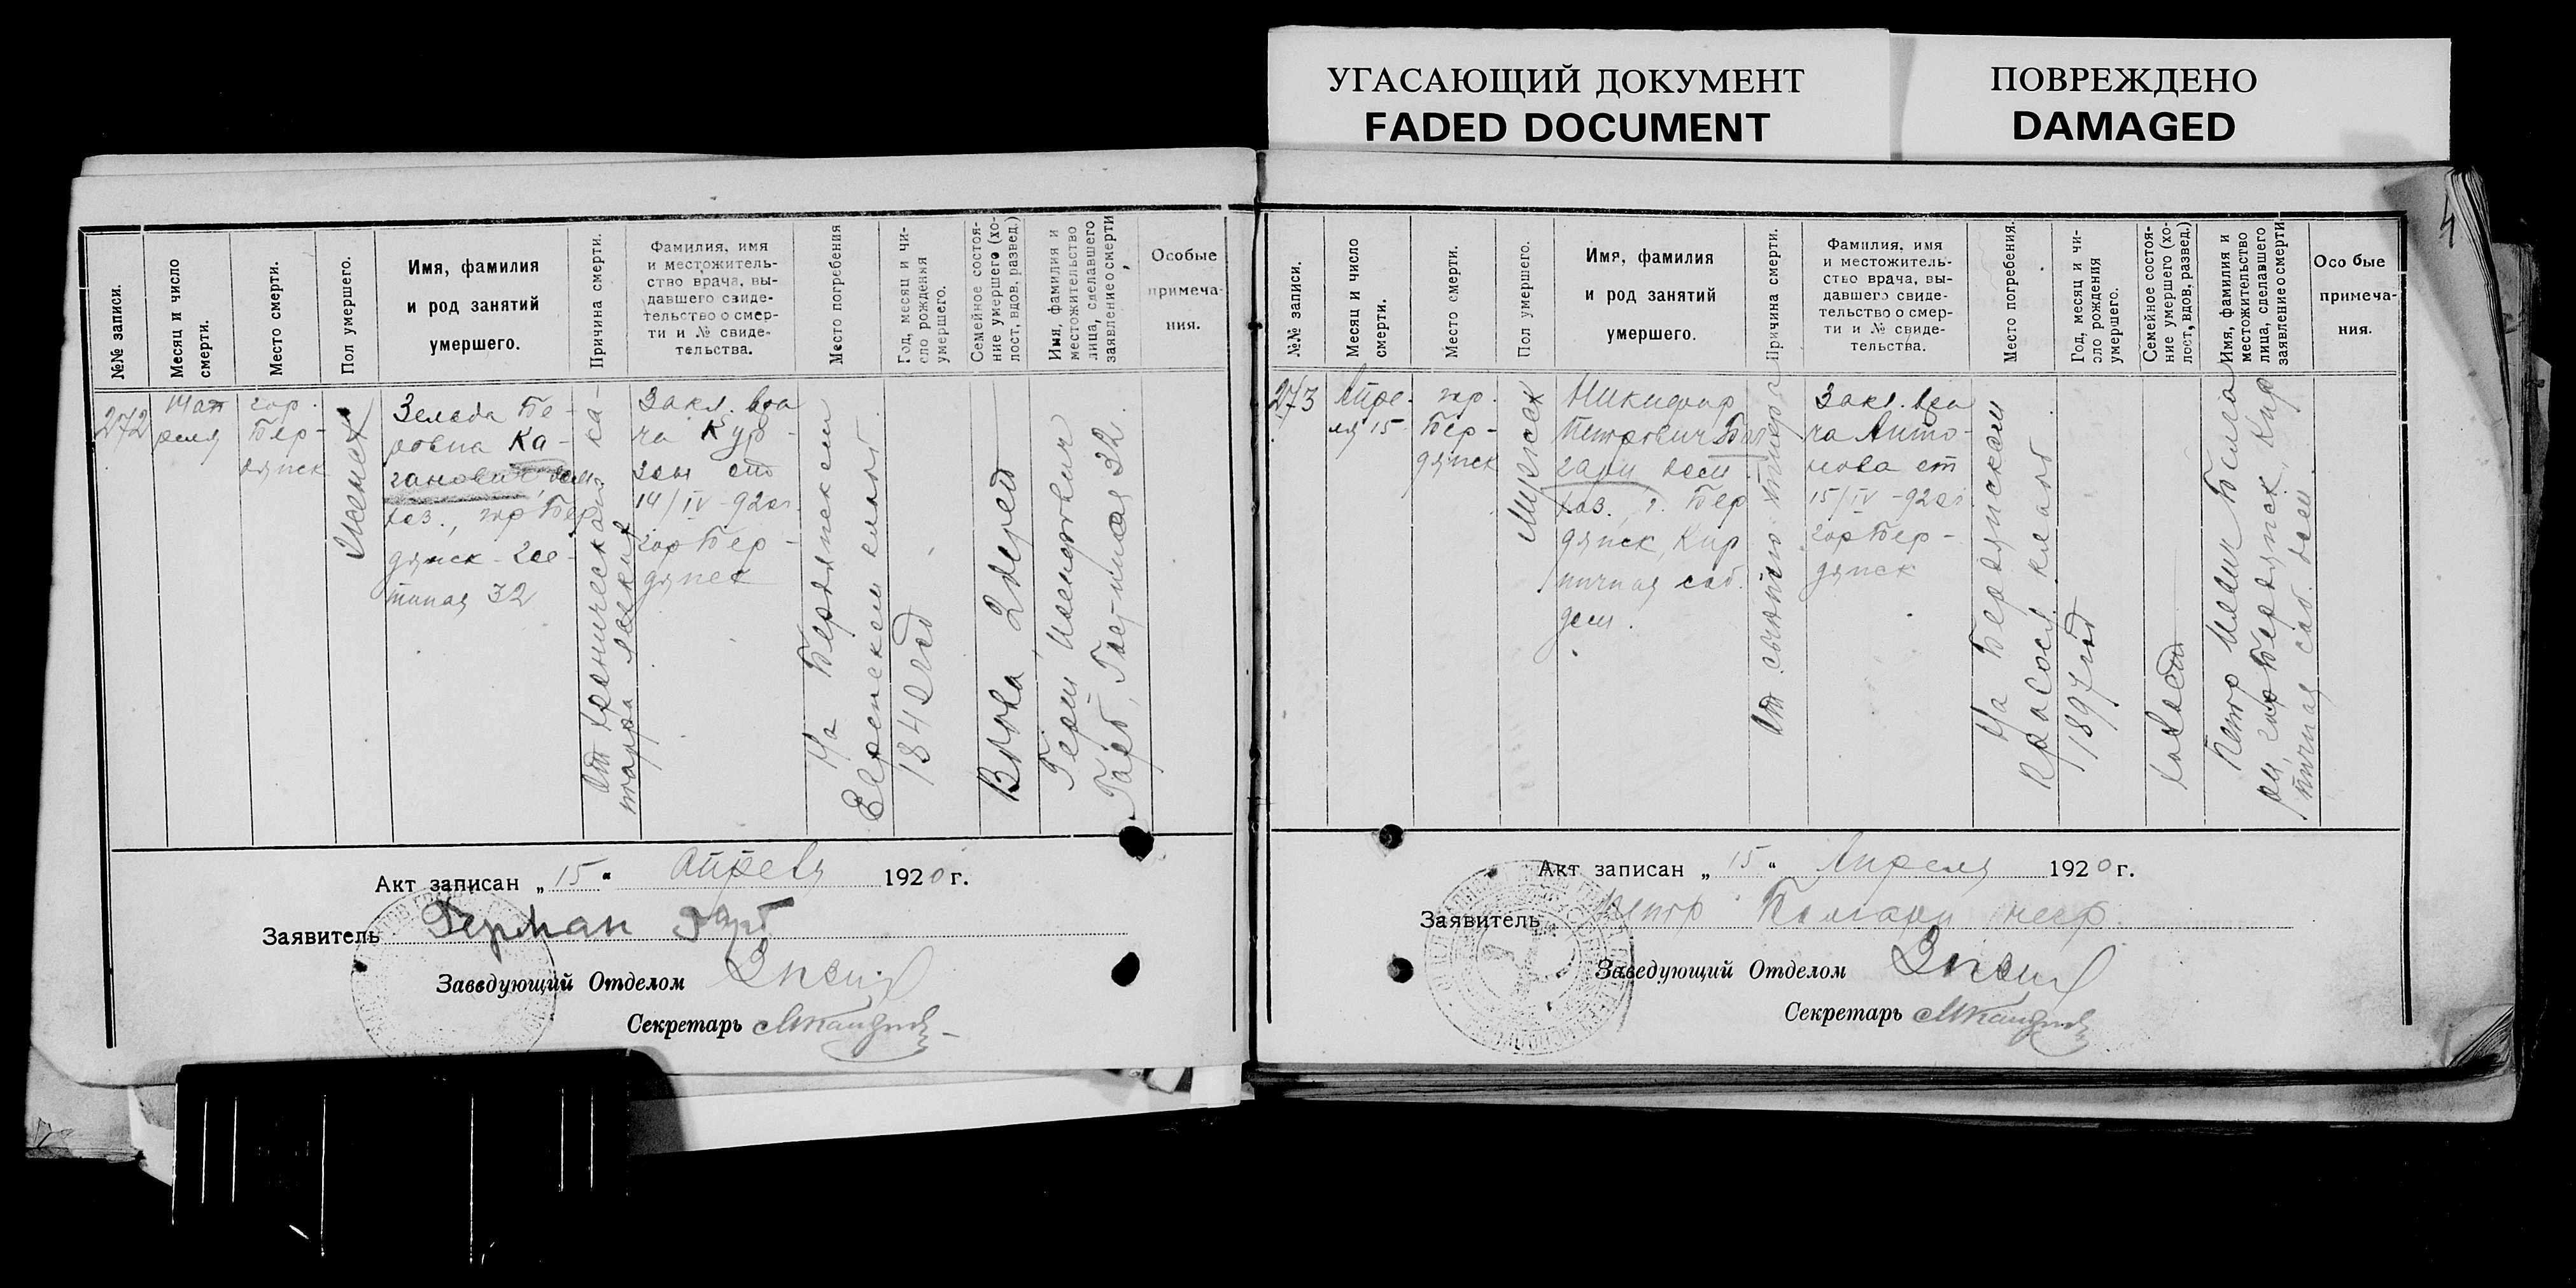 УГАСАЮЩИЙ ДОКУМЕНТ
FADED DOCUMENT
ПОВРЕЖДЕНО
DAMAGED
№№ записи.
Месяц и число
смерти.
Место смерти.
Пол умершего.
Имя, фамилия
и род занятий
умершего.
Причина смерти.
Фамилия, имя
и местожитель-
ство врача, вы-
давшего свиде-
тельство о смер-
ти и № свиде-
тельства.
Место погребения
Год, месяц и чи-
сло рождения
умершего.
Семейное состоя-
ние умершего (хо-
лост, вдов, развед.)
Имя, фамилия и
местожительство
лица, сделавшего
заявление о смерти
Особые
примеча-
ния.
272
14 ап
реля
гор.
Бер-
дянск
Женск
Зельда Бе-
ровна Ка-
ганович, дом.
хоз., гор Бер
дянск - Гос-
тиная 32
От хронического ка-
тарра
Закл. вра
ча
14/IV - 920г.
гор Бер -
дянск
На Бердянском
Еврейском кладб
184
Вдова
Герш
Гарб, Гостиная 32.
Акт записан „ 15 “ Апреля 1920 г.
Заявитель Герман Гарб
Заведующий Отделом
Секретарь
№№ записи.
Месяц и число
смерти.
Место смерти.
Пол умершего.
Имя, фамилия
и род занятий
умершего.
Причина смерти.
Фамилия, имя
и местожитель-
ство врача, вы-
давшего свиде-
тельство о смер-
ти и № свиде-
тельства.
Место погребения.
Год, месяц и чи-
сло рождения
умершего.
Семейное состоя-
ние умершего (хо-
лост, вдов, развед.)
Имя, фамилия и
местожительство
лица, сделавшего
заявление о смерти
Особые
примеча-
ния.
273
Апре-
ля 15
гор.
Бер-
дянск
Мужск
Никифор
Петрович Бол
гари дом
хоз. г. Бер
дянск, Кир
пичная соб.
дом.
От сыпного тифа
Закл. вра
ча Анто-
нова от
15/IV - 920г.
гор Бер -
дянск
На Бердянском
Правосл. кладб
1897 год
холост
Петр
гор Бердянск, Кир
пичная соб. дом
Акт записан „ 15 “ Апреля 1920 г.
Заявитель Петр Болгари
Заведующий Отделом
Секретарь